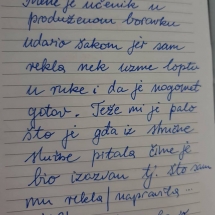 Mene je učenik u
produženom boravku
udario šakom jer sam
rekla nek uzme loptu
u ruke i da je nogomet
gotov. Teže mi je palo
što je gđa iz stručne
službe pitala čime je
bio izazvan tj. što sam
mu rekla/napravila...